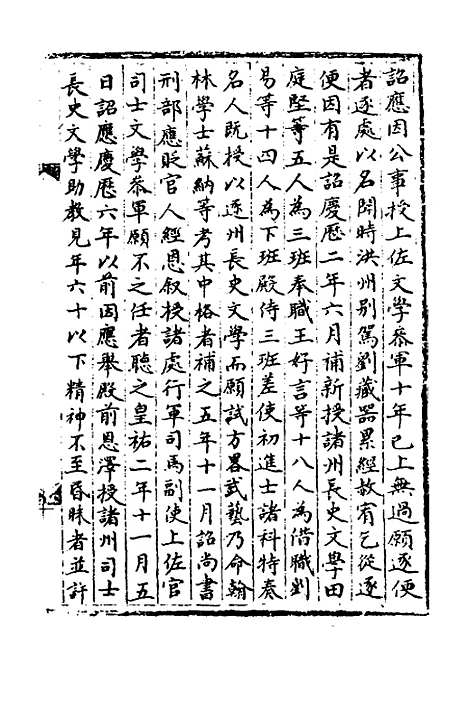 詔應因公事授上佐文學叅軍十年已上無過願逐便
者逐處以名聞時洪州别駕劉藏器累經赦宥乞從逐
便因有是詔慶歷二年六月補新授諸州長史文學田
庭堅等五人為三班奉職王好言等十八人為借職劉
易等十四人為下班殿侍三班差使初進士諸科特奏
名人既授以逐州長史文學而願試方畧武藝乃命翰
林學士蘇紳等考其中格者補之五年十一月詔尚書
刑部應貶官人經恩叙授諸處行軍司馬副使上佐官
司士文學叅軍願不之任者聽之皇祐二年十一月五
日詔應慶歷六年以前因應舉殿前恩澤授諸州司士
長史文學助教見年六十以下精神不至昏昧者並許